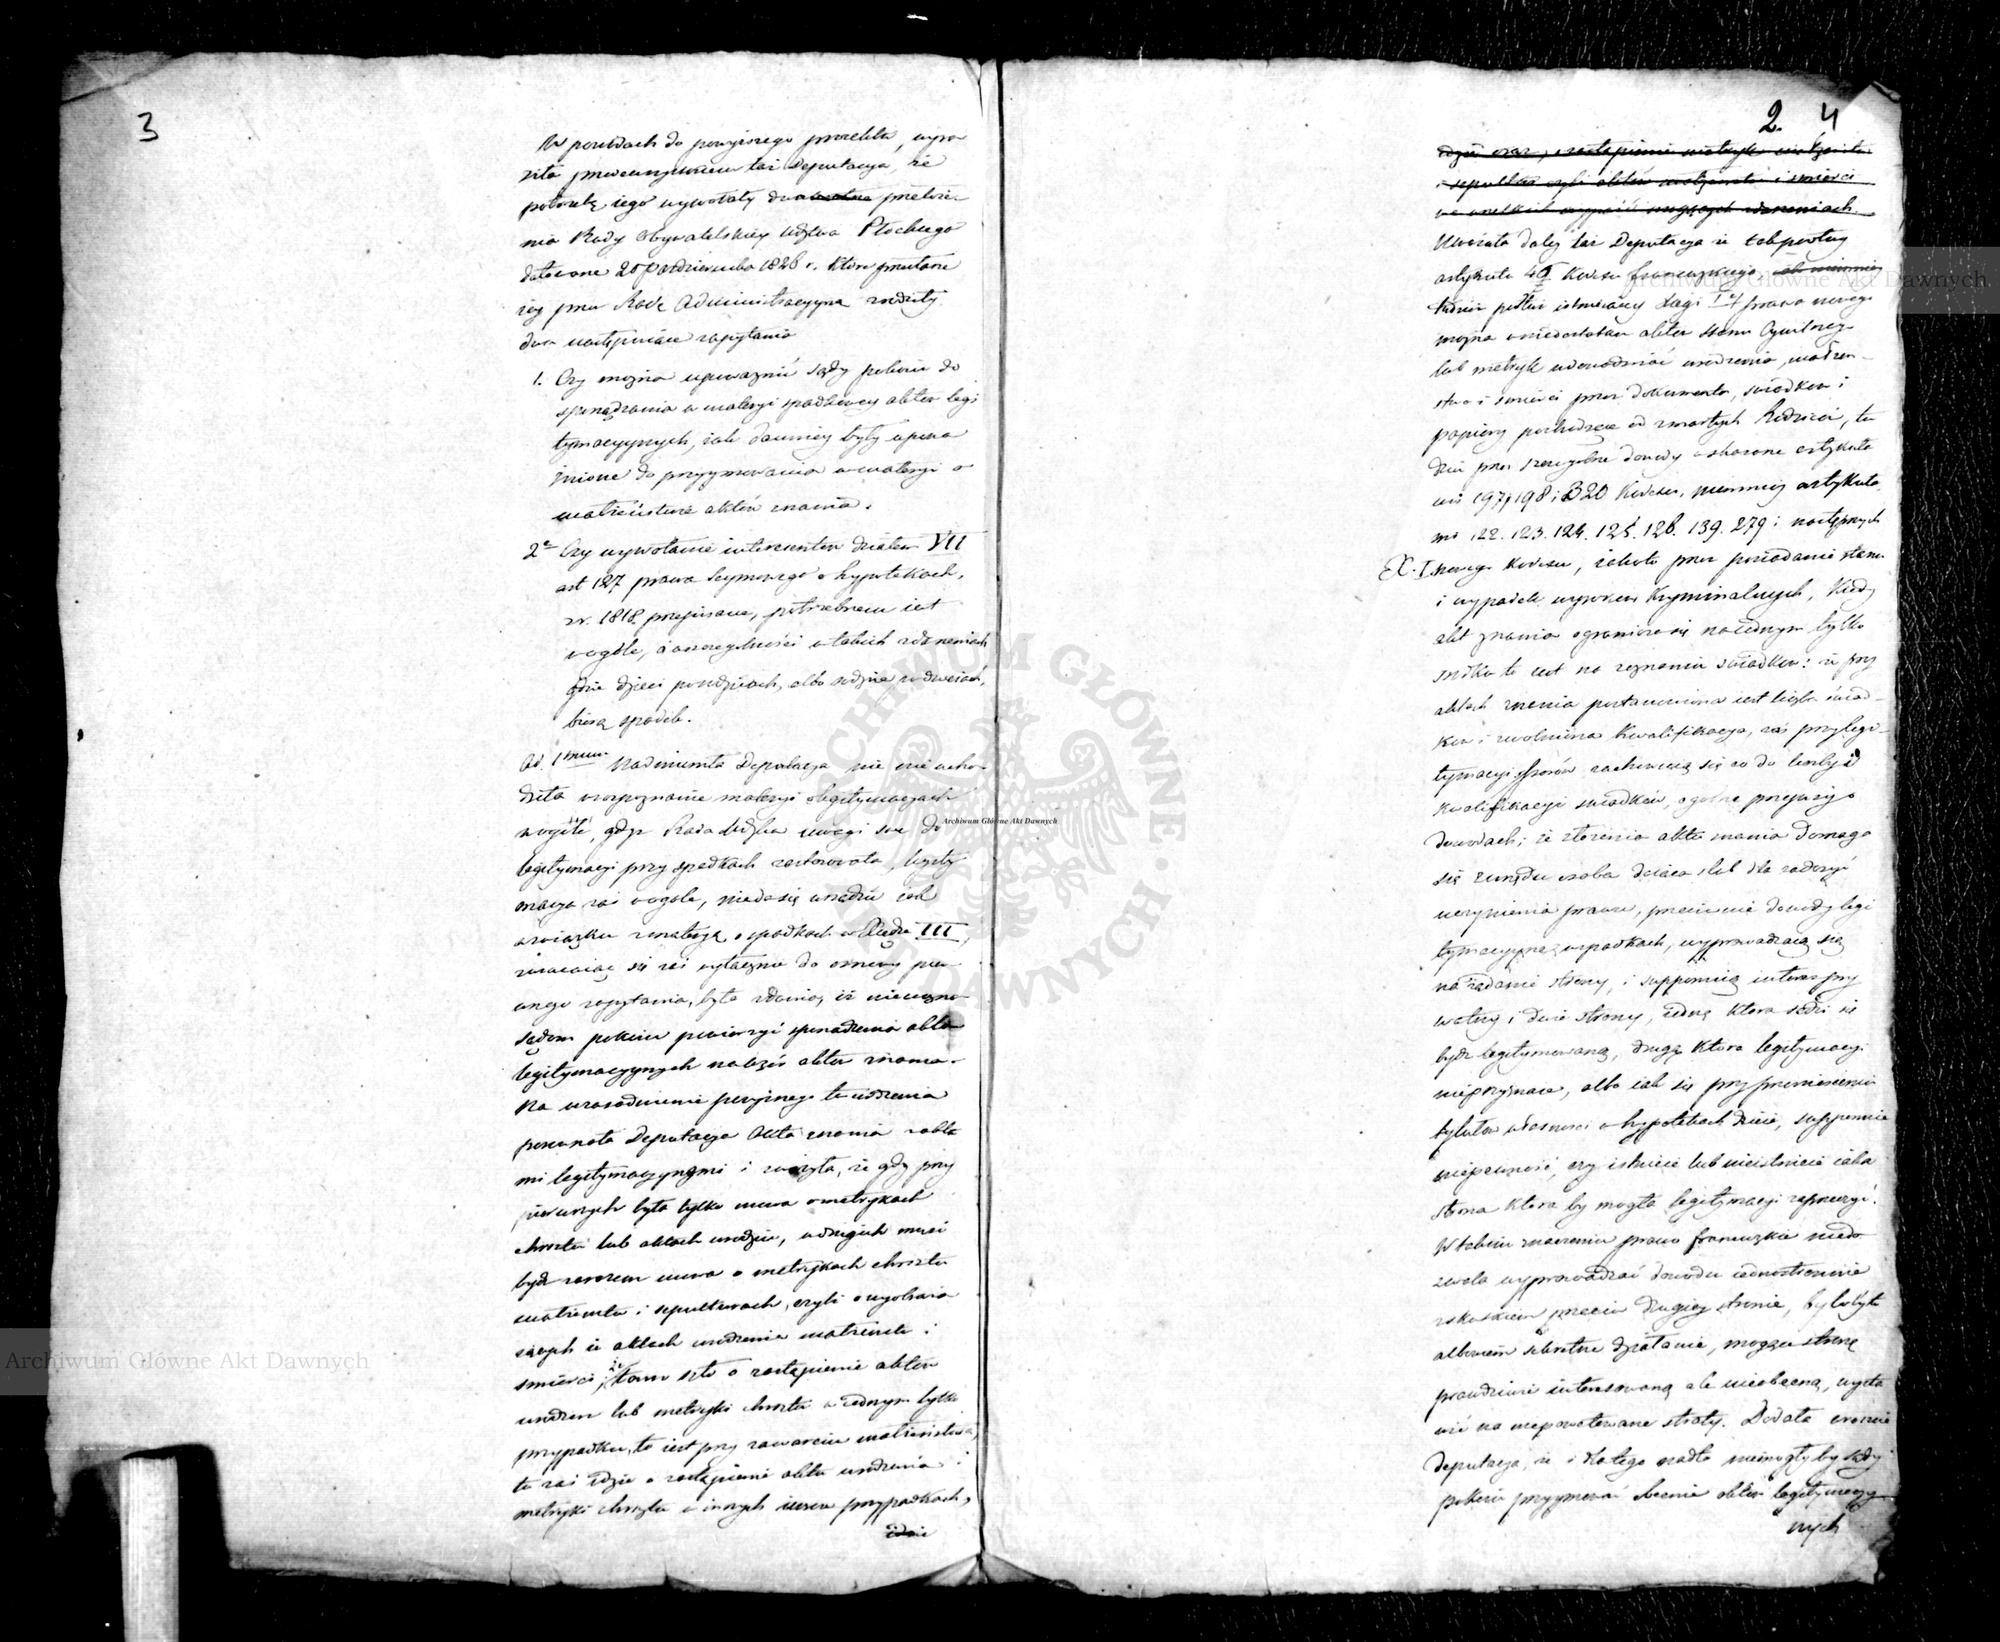 3
W powodach do powyższego proiektu, wyra-
ziła przeczenia taż Deputacya, że
potrzebę iego wywołały dwa przełoże-
nia Rady Obywatelskiey Wdztwa Płockiego
datowane 20 Października 1826 r. które
przez Radę Administracyyną
dwa następuiące zapytania
1. Czy można upoważnić Sądy pokoiu do
sporządzania w materyi spadkowey aktów legi
tymacyynych, iak dawniey były upowa
żnione do przyymowania w materyi o
małżeństwie aktów znania.
2e Czy wywołanie interesentów działem VII
art 127 prawa Seymowego o hypotekach,
zr. 1818 przepisane, potrzebnem iest
wogóle, a wszczególności w takich zdarzeniach
gdzie dzieci po rodzicach, albo rodzice po dzieciach,
biorą spadek.
Ad. 1mum Nadmieniła Deputacya nie
dziła w rozpoznanie materyi o legitymacyach
wogóle, gdyż Rada Wdzka uwagi swe do
legitymacyi przy spadkach zastosowała, legity
macya zaś wogóle, nieda się urządzić iak
w związku z materyą o spadkach w Xiędze III,
zwracaiąc się zaś wyłącznie do osnowy pier
wszego zapytania, była zdania, iż niemożna
sądom pokoiu powierzyć sporządzenia aktów
legitymacyynych nakształt aktów znania.
Na uzasadnienie powyższego twierdzenia
porównała Deputacya Akta znania z akta
mi legitymacyynymi i zważyła, że gdy przy
pierwszych była tylko mowa o metrykach
chrztu lub aktach urodzin, w drugich musi
bydź zarazem mowa o metrykach chrztu
małżeństwa i sepulturach, czyli
o aktach urodzenia małżeństwa i
śmierci, że tam szło o zastąpienie aktów
urodzin lub metryki chrztu w iednym tylko
przypadku, to iest przy zawarciu małżeństwa,
tu zaś idzie o zastąpienie aktu urodzenia i
metryki chrztu w innych ieszcze przypadkach,
idzie
2. 4
Uważała daley taż Deputacya iż
artykułu 46 Kodexu francuzkiego
tudzież podług istnieiącey Xięgi I prawa nowego
można w niedostatku aktów stanu Cywilnego
lub metryk udowadniać urodzenia, małżeń-
stwa i śmierci przez dokumenta, świadków i
papiery pochodzące od zmarłych Rodziców, tu
dzież przez szczególne dowody wskazane artykuła
mi 197, 198 i 320 Kodexu, niemniey artykuła
mi 122. 123. 124. 125. 126. 139. 279 i następnych
X. I. nowego Kodexu, iakoto przez posiadanie stanu
i wypadek wyroków Kryminalnych, Kiedy
akt znania ogranicza się na iednym tylko
środku to iest na zeznaniu świadków: iż przy
aktach znania postanowiona iest liczba świad-
ków i zwolniona kwalifikacya, zaś przy legi-
tymacyi Spadków zachowuią się co do liczby i
kwalifikacyi świadków, ogólne przepisy o
dowodach; że złożenia aktu znania domaga
się urzędu osoba daiąca slub dla zadosyć
uczynienia prawu, przeciwnie dowody legi
tymacyyne w spadkach, wyprowadzaią się
na żądanie strony, i supponuią interes pry
watny i dwie strony, iedną która sądzi się
bydź legitymowaną, drugą która legitymacyi
nieprzyznaie, albo iak się przy przeniesieniu
tytułów własności w hypotekach dzieie, supponuie
niepewność, czy istnieie lub nieistnieie iaka
strona która by mogła legitymacyi zaprzeczyć.
W takim znaczeniu prawo francuzkie niedo
zwala wyprowadzać dowodu iednostronnie
ze skutkiem przeciw drugiey stronie, byłoby to
albowiem sekretne działanie, mogące stronę
prawdziwie interesowaną ale nieobecną, wysta
wić na niepowetowane straty. Dodała wreszcie
Deputacya, że i dlatego nadto niemogłyby sądy
pokoiu przyymować obecnie aktów legitymacyy
nych
Archiwum Główne Akt Dawnych
Archiwum Główne Akt Dawnych
Archiwum Główne Akt Dawnych
ARCHIWUM GŁÓWNE AKT DAWNYCH